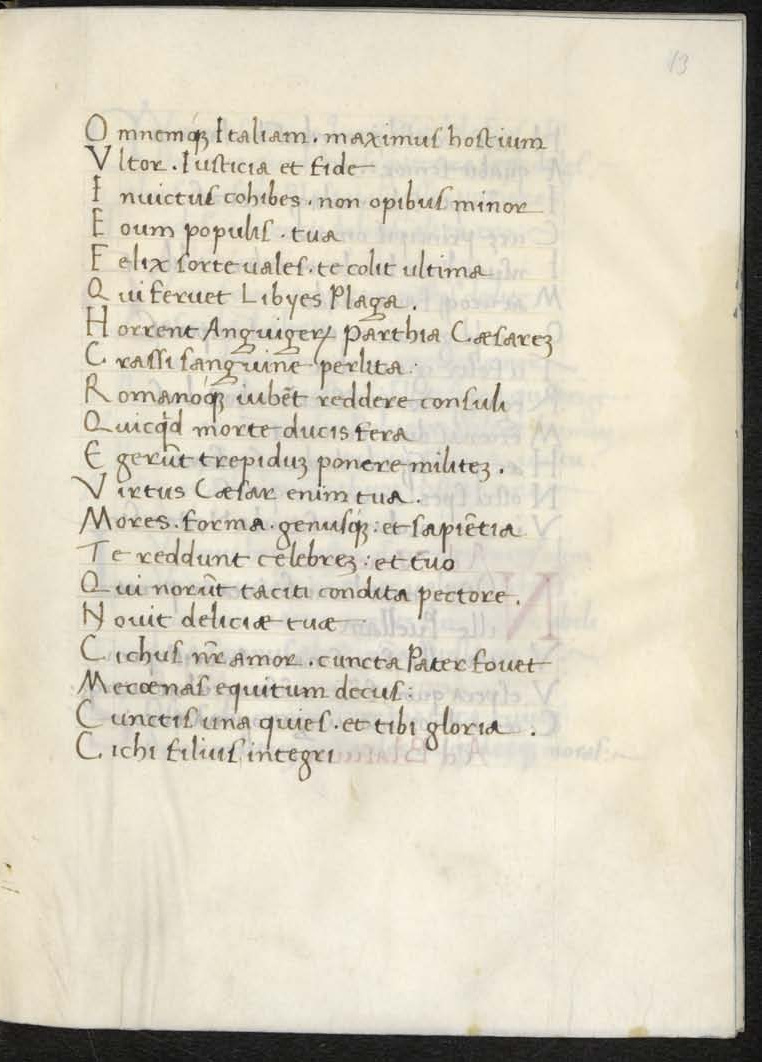 13
Omnemq́ꝫ Italiam . maximus hostium
Vltor . Iusticia et fide
Inuictus cohibes . non opibus minor
Eoum populis . tua
Felix sorte uales . te colit ultima
Qui feruet Libyes Plaga .
Horrent Anguigerꝝ Parthia Cæsareꝫ
Crassi sanguine perlita .
Romanoq́ꝫ iubẽt reddere consuli
Quicq̇d morte ducis fera
Egerũt trepiduꝫ ponere militeꝫ .
Virtus Cæsar enim tua .
Mores . forma . genusq́ꝫ : et sapiẽtia
Te reddunt celebreꝫ : et tuo
Qui norũt taciti condita pectore .
Nouit deliciæ tuæ
Cichus nr̃ amor . cuncta Pater fouet
Mecœnas equitum decus :
Cunctis una quies . et tibi gloria .
Cichi filius integri